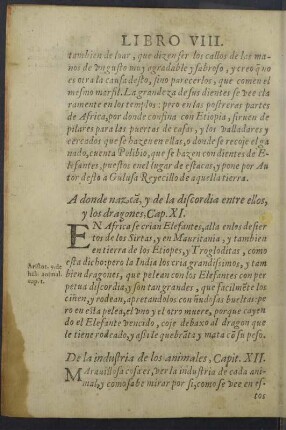 LIBRO VIII.
tambien de suar, que dizen ser los callos de las ma
nos de vn gusto muy agradable y sabroso, y creo q̃ no
es otra la causa desto, sino parecerlos, que comen el
mesmo marfil. La grandeza de sus dientes se vee cla
ramente en los templos: pero en las postreras partes
de Africa, por donde confina con Etiopia, siruen de
pilares para las puertas de casas, y los valladares y
cercados que se hazen en ellas, o donde se recoje el ga
nado, cuenta Polibio, que se hazen con dientes de E-
lefantes, puestos en el lugar de estacas, y pone por Au
tor desto a Gulusa Reyecillo de aquella tierra.
A donde nazcã, y de la discordia entre ellos,
y los dragones, Cap. XI.
EN Africa se crian Elefantes, alla en los desier
tos de los Sirtas, y en Mauritania, y tambien
en tierra de los Etiopes, y Trogloditas, como
esta dicho: pero la India los cria grandissimos, y tam
bien dragones, que pelean con los Elefantes con per
petua discordia, y son tan grandes, que facilmẽte los
ciñen, y rodean, apretandolos con ñudosas bueltas: pe
ro en esta pelea, el vno y el otro muere, porque cayen
do el Elefante vencido, coje debaxo al dragon que
le tiene rodeado, y assi le quebrãta y mata cõ su peso.
De la industria de los animales, Capit. XII.
MArauillosa cosa es, ver la industria de cada ani
mal, y como sabe mirar por si, como se vee en es-
tos